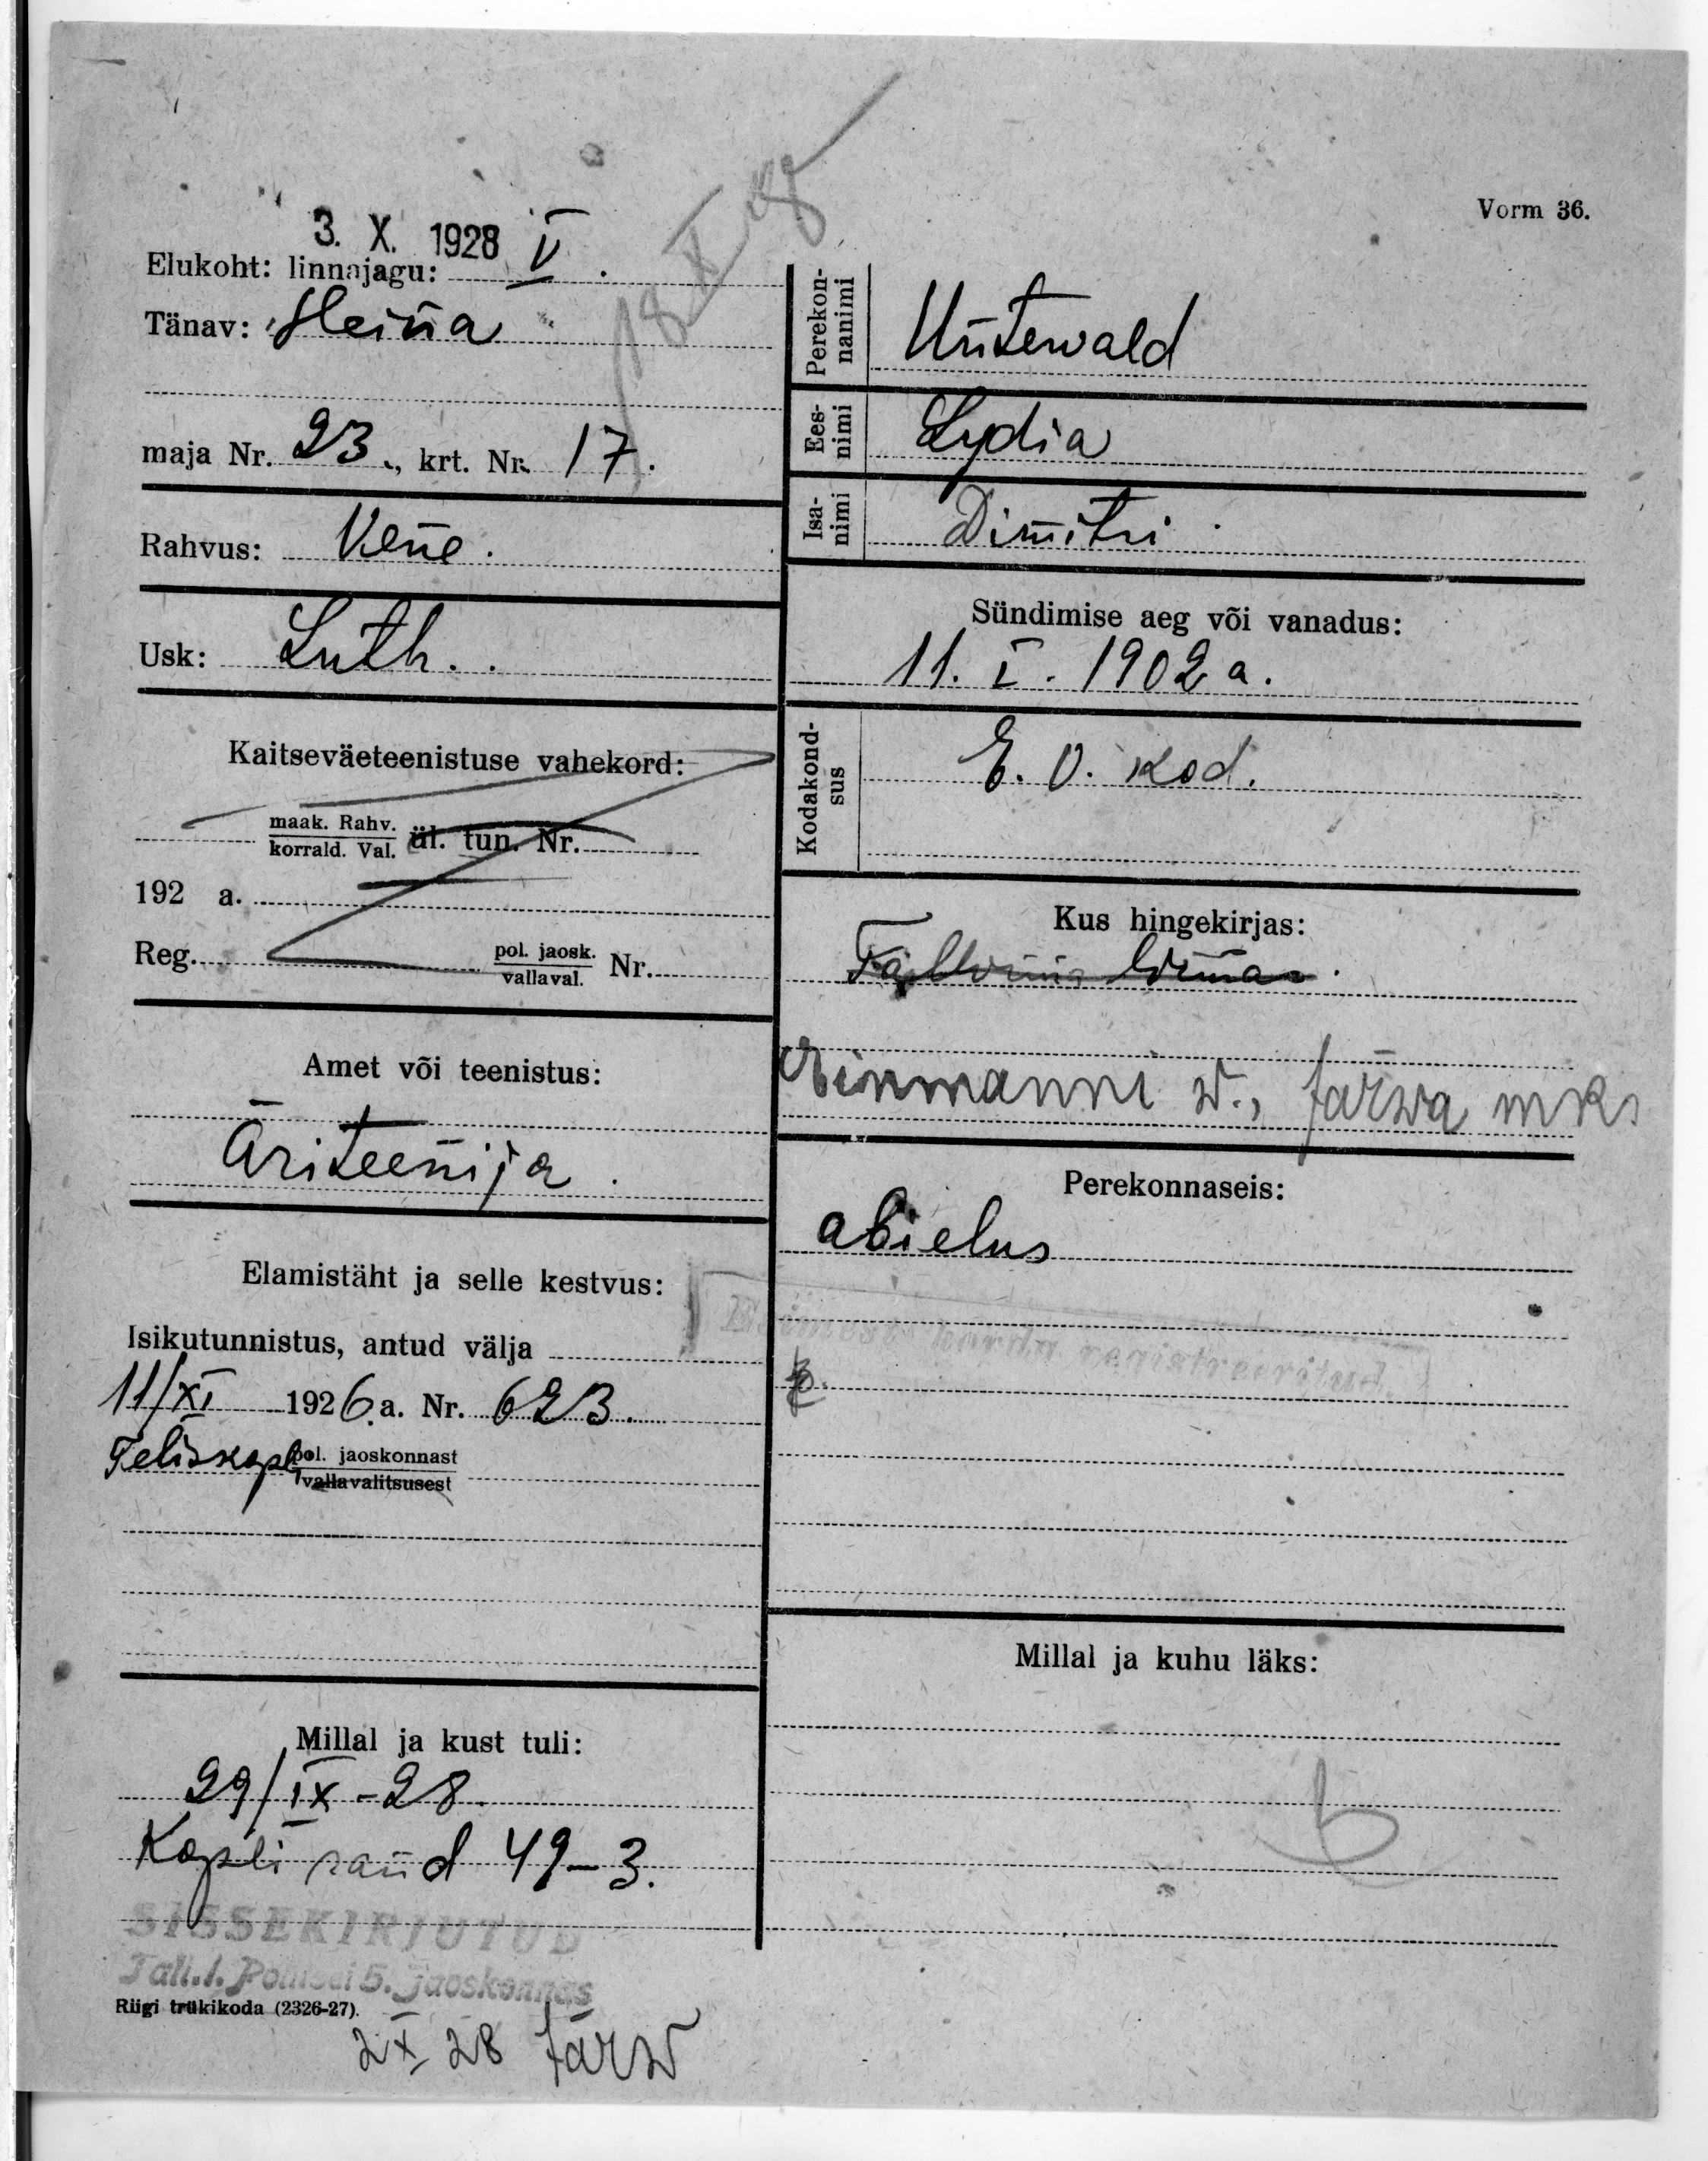 Vorm 36.
3. X. 1928
Elukoht: linnajagu: V.
Tänav: Heina
maja Nr. 23., krt. Nr. 17.
Rahvus: Vene.
Usk: Luth.
Kaitseväeteenistuse vahekord:
maak. Rahv.
korrald. Val. ül. tun. Nr.
192 a.
Reg. pol. jaosk.
vallaval. Nr.
Amet või teenistus:
Äriteenija.
Elamistäht ja selle kestvus:
Isikutunnistus, antud välja
11/XI 1926.a. Nr. 623.
Teliskopli pol. jaoskonnast
vallavalitsusest
Millal ja kust tuli:
29/IX-28.
Kopli rand 49-3.
SISSEKIRJUTUD
Tall.l. Politsei 5. jaoskonnas
Riigi trükikoda (2326-27).
2 X 28 Järw
18 X 28
Perekonnanimi
Untewald
Eesnimi
Lydia
Isanimi
Dimitri
Sündimise aeg või vanadus:
11. I. 1902 a.
Kodakondsus
E. V. kod.
Kus hingekirjas:
Tallinna linnas.
Einmanni w., Järwa mk.
Perekonnaseis:
abielus
Esimest korda registreeritud.
Millal ja kuhu läks: